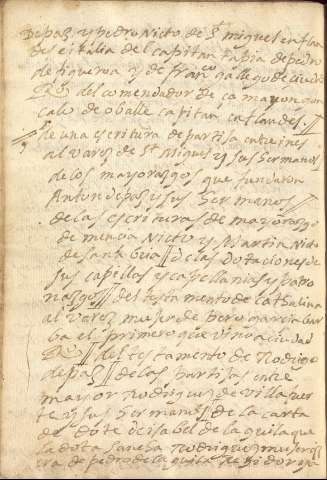 depaz y pedro nieto de st miguel en flan
des e italia del capitan tapia de pedro
de figueroa y de franco gallego de
del comendador de ca mayor gon
calo de oballe capitan en flandes
de una escritura de partisa entre ines
alvarez de st Miguel y sus hermanos
de los mayorazgos que fundaron
Anton depaz y sus hermanos
de las escrituras de mayorazgo
de mencia nieto y Martin nieto
de las dotaciones de
sus capillas y capellanias y patro
nazgos del testamento de catthalina
alvarez muger de pero garcia bar
ba el primero que vino a ciudad
del testamento de Rodrigo
depaz de las partisas entre
mayor Rodriguez de villafuer
te y sus hermanos de la carta
de dote de isabel del aguila que
la dota sancha Rodriguez
de pedro del aguila